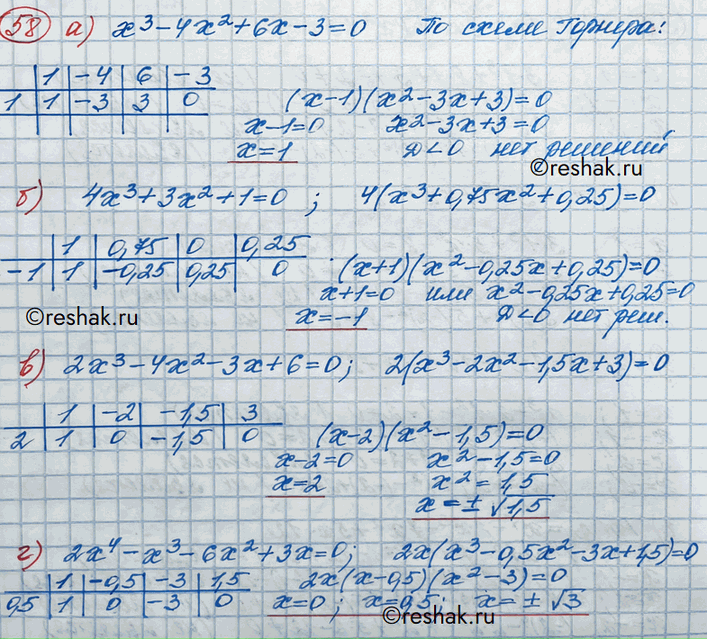 58 а) x³-4x²+6x-3=0 По схеме Горнера:
1 -4 6 -3
1 1 -3 3 0 (x-1)(x²-3x+3)=0
x-1=0 x²-3x+3=0
x=1 D<0 нет решений
©reshak.ru
б) 4x³+3x²+1=0 ; 4(x³+0,75x²+0,25)=0
1 0,75 0 0,25
-1 1 -0,25 0,25 0 (x+1)(x²-0,25x+0,25)=0
x+1=0 или x²-0,25x+0,25=0
©reshak.ru x=-1 D<0 нет реш.
в) 2x³-4x²-3x+6=0; 2(x³-2x²-1,5x+3)=0
1 -2 -1,5 3
2 1 0 -1,5 0 (x-2)(x²-1,5)=0
x-2=0 x²-1,5=0
x=2 x²=1,5
x=±√1,5
г) 2x⁴-x³-6x²+3x=0; 2x(x³-0,5x²-3x+1,5)=0
1 -0,5 -3 1,5 2x(x-0,5)(x²-3)=0
0,5 1 0 -3 0 x=0; x=0,5; x=±√3
©reshak.ru